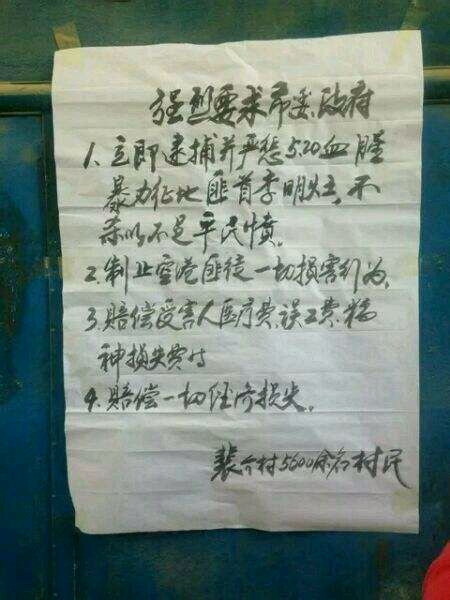 强烈要求市委政府
1、立即逮捕并严惩5.20血腥
暴力征地匪首李明灶、不
杀以不足平民愤。
2.制止空港匪徒一切损害行为、
3、赔偿受害人医疗费、误工费、精
神损失费
4、赔偿一切经济损失。
裴介村5600余名村民